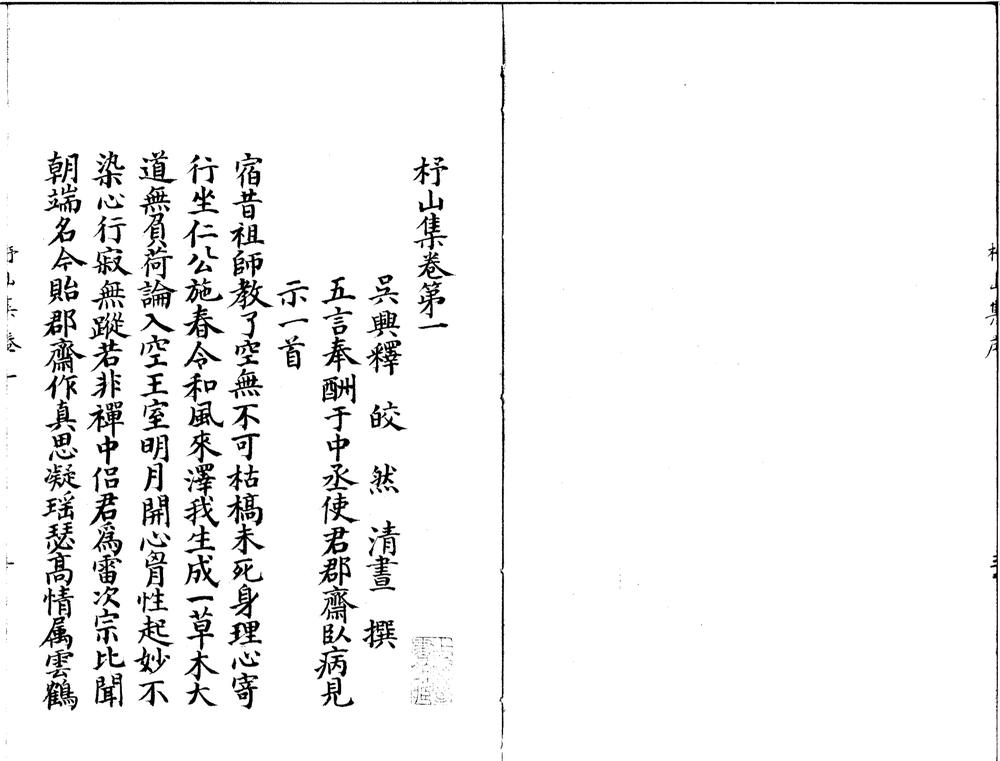 杼山集卷第一
吳興釋 皎 然 清晝 撰
五言奉酬于中丞使君郡齋臥病見
示一首
宿昔祖師教了空無不可枯槁未死身理心寄
行坐仁公施春令和風來澤我生成一草木大
道無負荷論入空王室明月開心胷性起妙不
染心行寂無蹤若非禪中侣君爲雷次宗比聞
朝端名今貽郡齋作真思凝瑶瑟高情属雲鶴